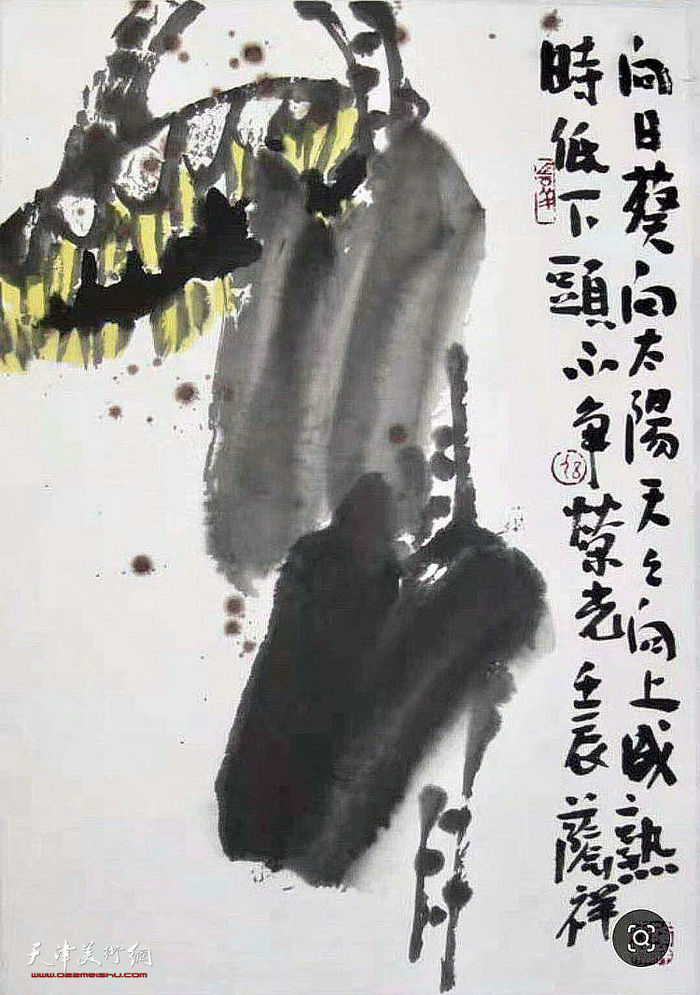 向日葵向太陽天々向上成熟
時低下頭不争榮光壬辰蔭祥
天津美術網
www.022meishu.com